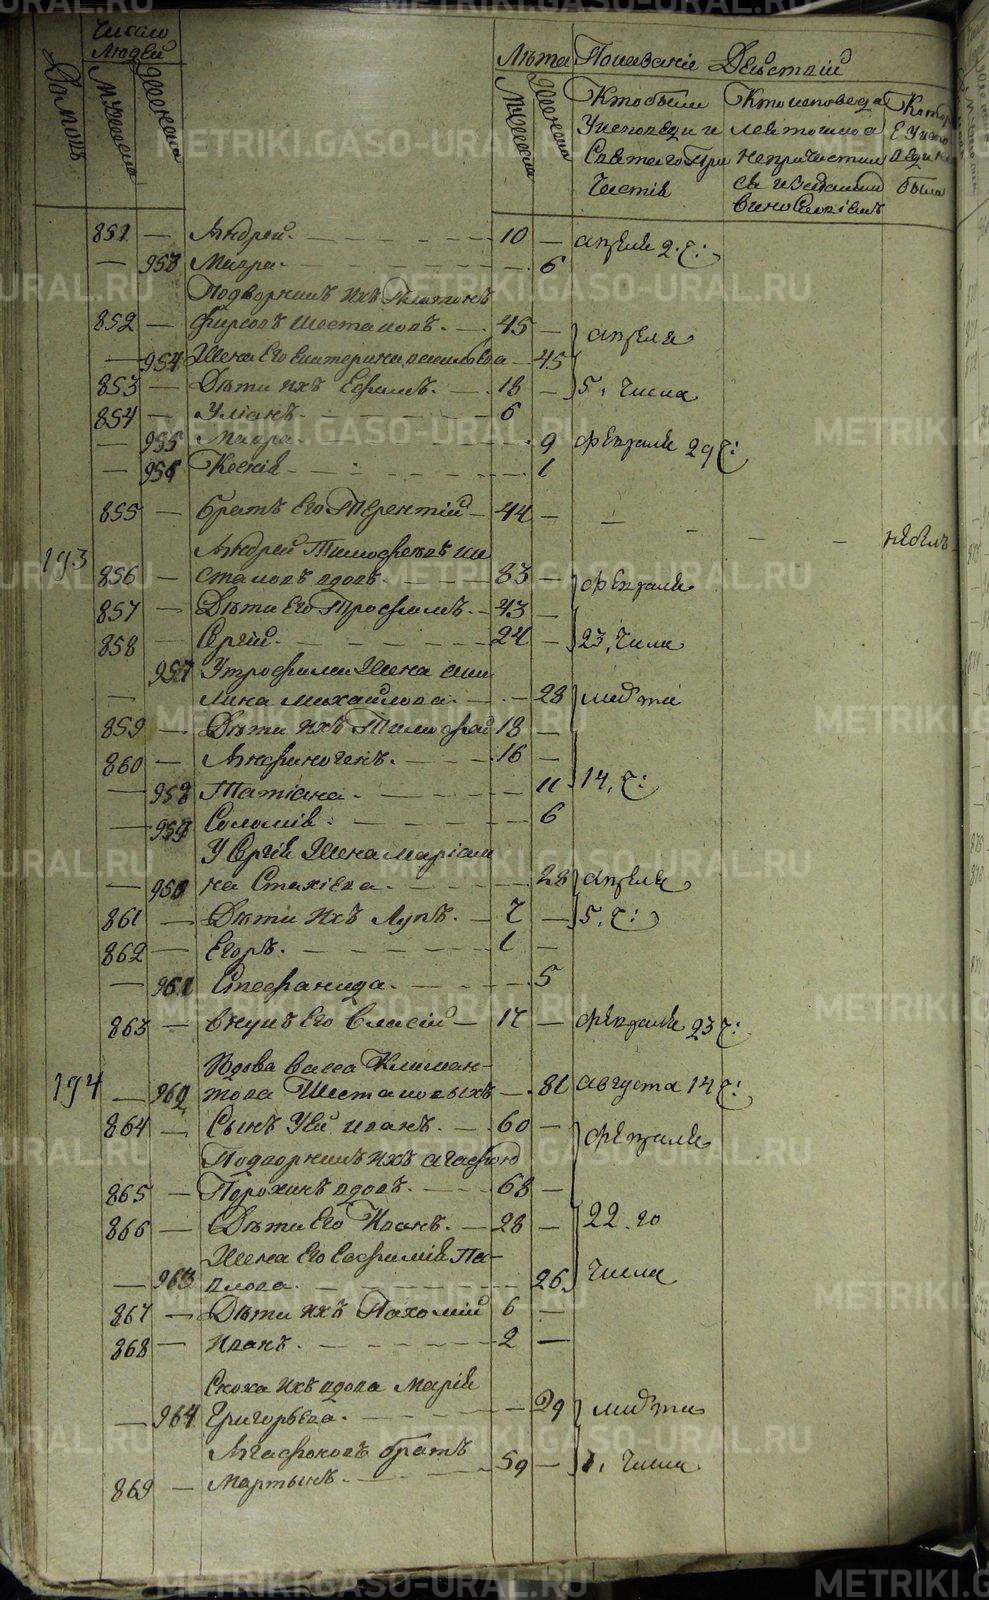 Число Людей
Домовъ
Мужеска
Женска
Лѣта
Мужеска
Женска
Показаніе Действій
Кто были
У исповеди и
Святаго При
частія
Кто исповеда
лся токмо а
не причастил
ся и за каким
вино словіемъ
Котор
былъ
851 — Андрей. — 10 — апреля 2. ч:
— 953 Мавра. — 6
Подворникъ ихъ Платонъ
852 — Фирсовъ Шестаковъ. — 45 — апреля
— 954 Жена Его Екатерина — 45
853 — Дѣти ихъ Ефимъ. — 18 — 5, числа
854 — Уліанъ. — 6
— 955 Мавра. — 9 февраля 29 ч:
— 956 Ксенія — 1
855 — братъ Его Терентій — 44 — — — — — небылъ
193 Андрей Тимофеевъ Ше
856 — стаковъ вдовъ. — 83 — февраля
857 — Дѣти Его Трофимъ. — 43 —
858 — Сергій. — 24 — 23, числа
957 У трофима Жена Аки
— лина михайлова. — 28 марта
859 — Дѣти ихъ Тимофей 18 —
860 — Анфиногенъ. — 16 —
— 958 Татіана. — 11 14, ч:
— 959 Соломія: — 6
У Сергія Жена маріам
— 960 на Стахіева. — 28 апреля
861 — Дѣти ихъ Лупъ. — 7 — 5, ч:
862 — Егоръ. — 1 —
— 961 Стефанида. — 5
863 — внукъ Его Власій — 17 — февраля 23 ч:
194 Вдова васса Климан-
— 962 това Шестаковыхъ — 81 августа 14 ч:
864 — Сынъ Уей иванъ. — 60 — февраля
Подворникъ ихъ Агафон
865 — Порохинъ вдовъ. — 68 —
866 — Дѣти Его Иванъ. — 28 — 22. го
Жена Его Евфимія Па-
— 963 влова. — 26 числа
867 — Дѣти ихъ Пахомій 6 —
868 — Иванъ. — 2 —
Сноха ихъ вдова Марія
— 964 Григорьева. — 29 марта
Агафоновъ братъ
869 — Мартынъ — 59 — 1, числа
METRIKI.GASO-URAL.RU